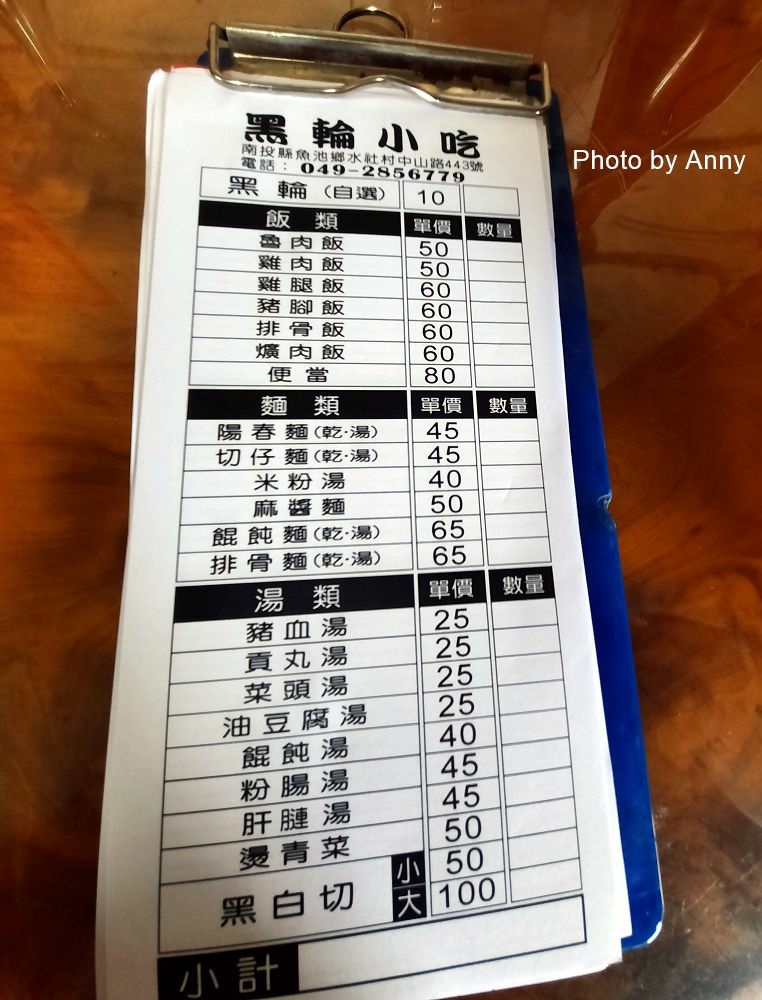 黑輪小吃
南投縣魚池鄉水社村中山路443號
電話：049-2856779
Photo by Anny
黑輪（自選） 10
飯類 單價 數量
魯肉飯 50
雞肉飯 50
雞腿飯 60
豬腳飯 60
排骨飯 60
爌肉飯 60
便當 80
麵類 單價 數量
陽春麵（乾·湯） 45
切仔麵（乾·湯） 45
米粉湯 40
麻醬麵 50
餛飩麵（乾·湯） 65
排骨麵（乾·湯） 65
湯類 單價 數量
豬血湯 25
貢丸湯 25
菜頭湯 25
油豆腐湯 25
餛飩湯 40
粉腸湯 45
肝膧湯 45
燙青菜 50
黑白切 小 50
大 100
小計